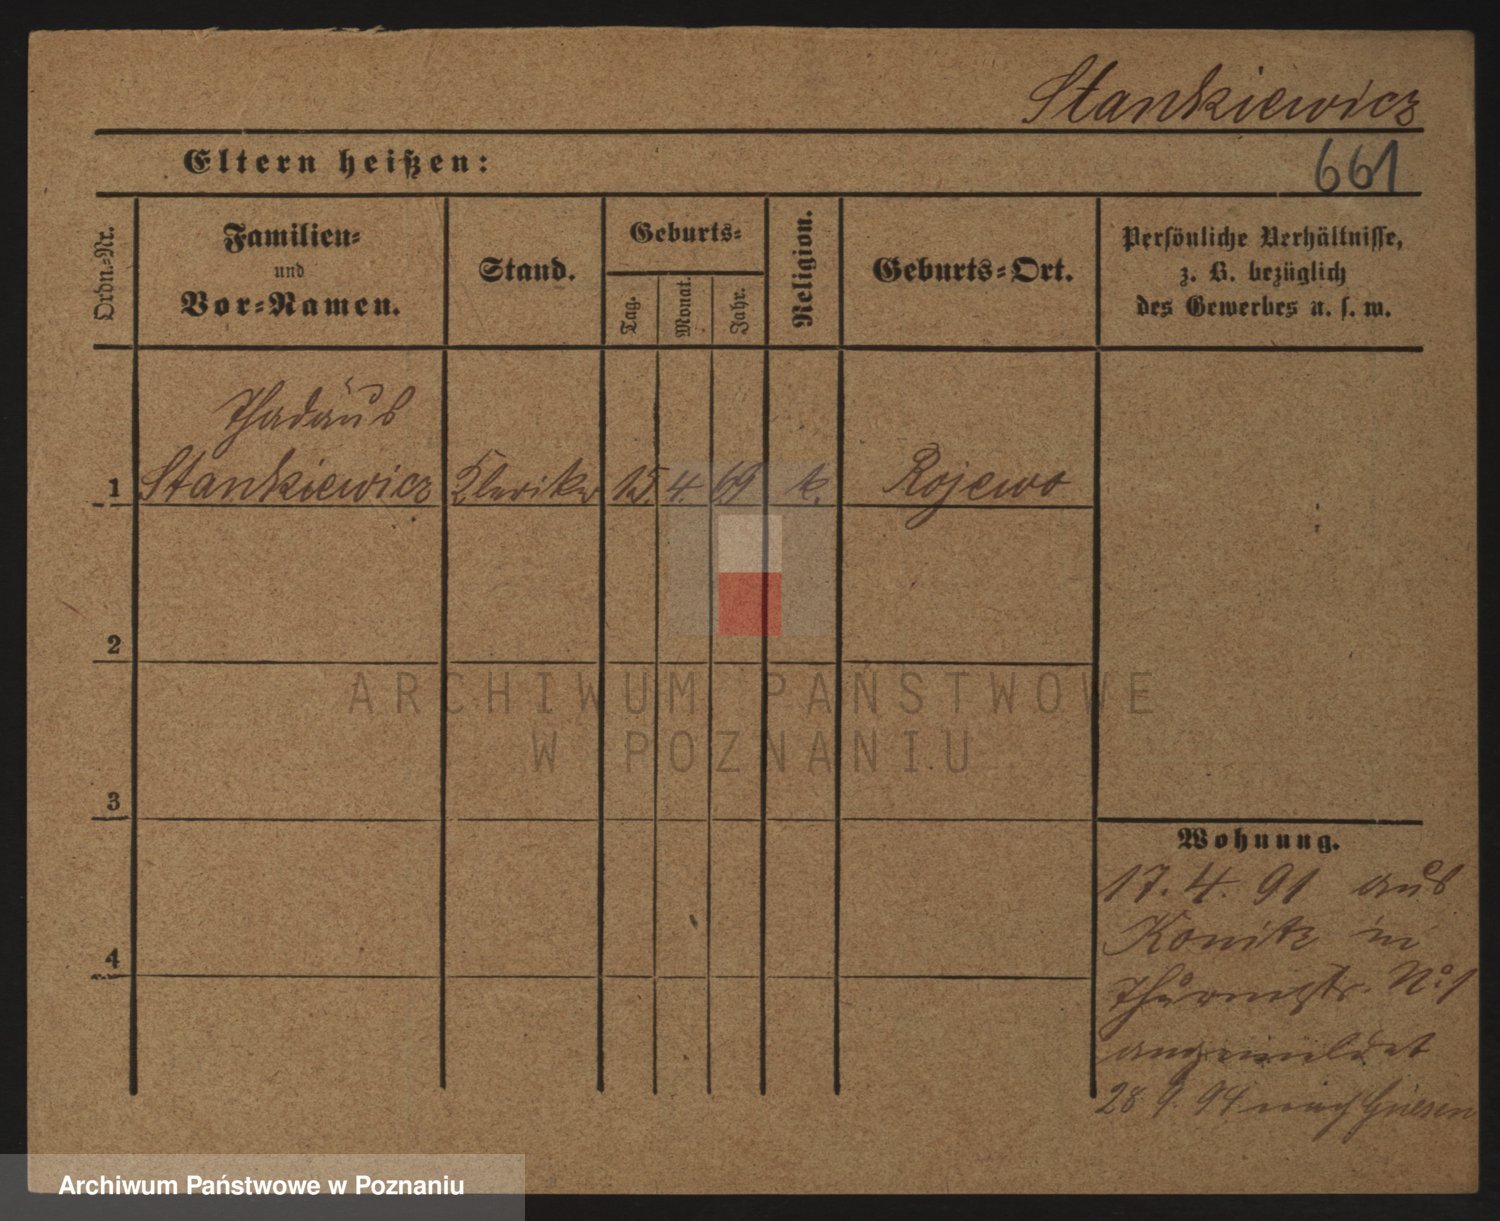 Stankiewicz
Eltern heißen:
661
Ordn.-Nr.
Familien-
und
Vor-Namen.
Stand.
Geburts-
Tag.
Monat.
Jahr.
Religion.
Geburts-Ort.
Persönliche Verhältnisse,
z. B. bezüglich
des Gewerbes u. s. w.
Thadäus
1 Stankiewicz Kleriker 15. 4. 69 k. Rojewo
2
3
4
Wohnung.
17. 4. 91 aus
Konitz in
Thurmstr. No 1
angemeldet
28 9. 94 nach Gnesen
ARCHIWUM PAŃSTWOWE
W POZNANIU
Archiwum Państwowe w Poznaniu